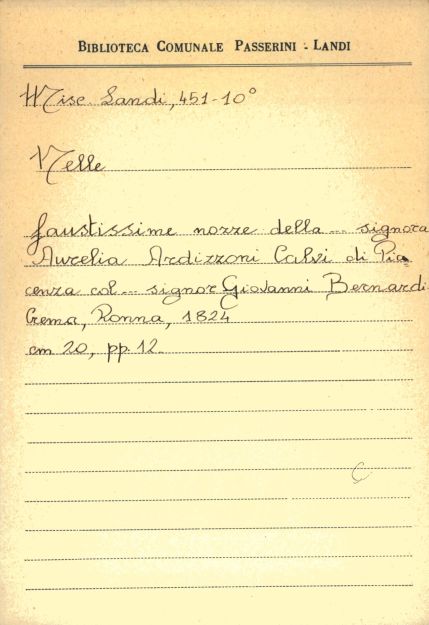 BIBLIOTECA COMUNALE PASSERINI - LANDI
Misc. Landi, 451-10°
Nelle
faustissime nozze della ... signora
Aurelia Ardizzoni Calvi di Pia
cenza col ... signor Giovanni Bernardi
Crema, Ronna, 1824
cm 20, pp. 12.
C